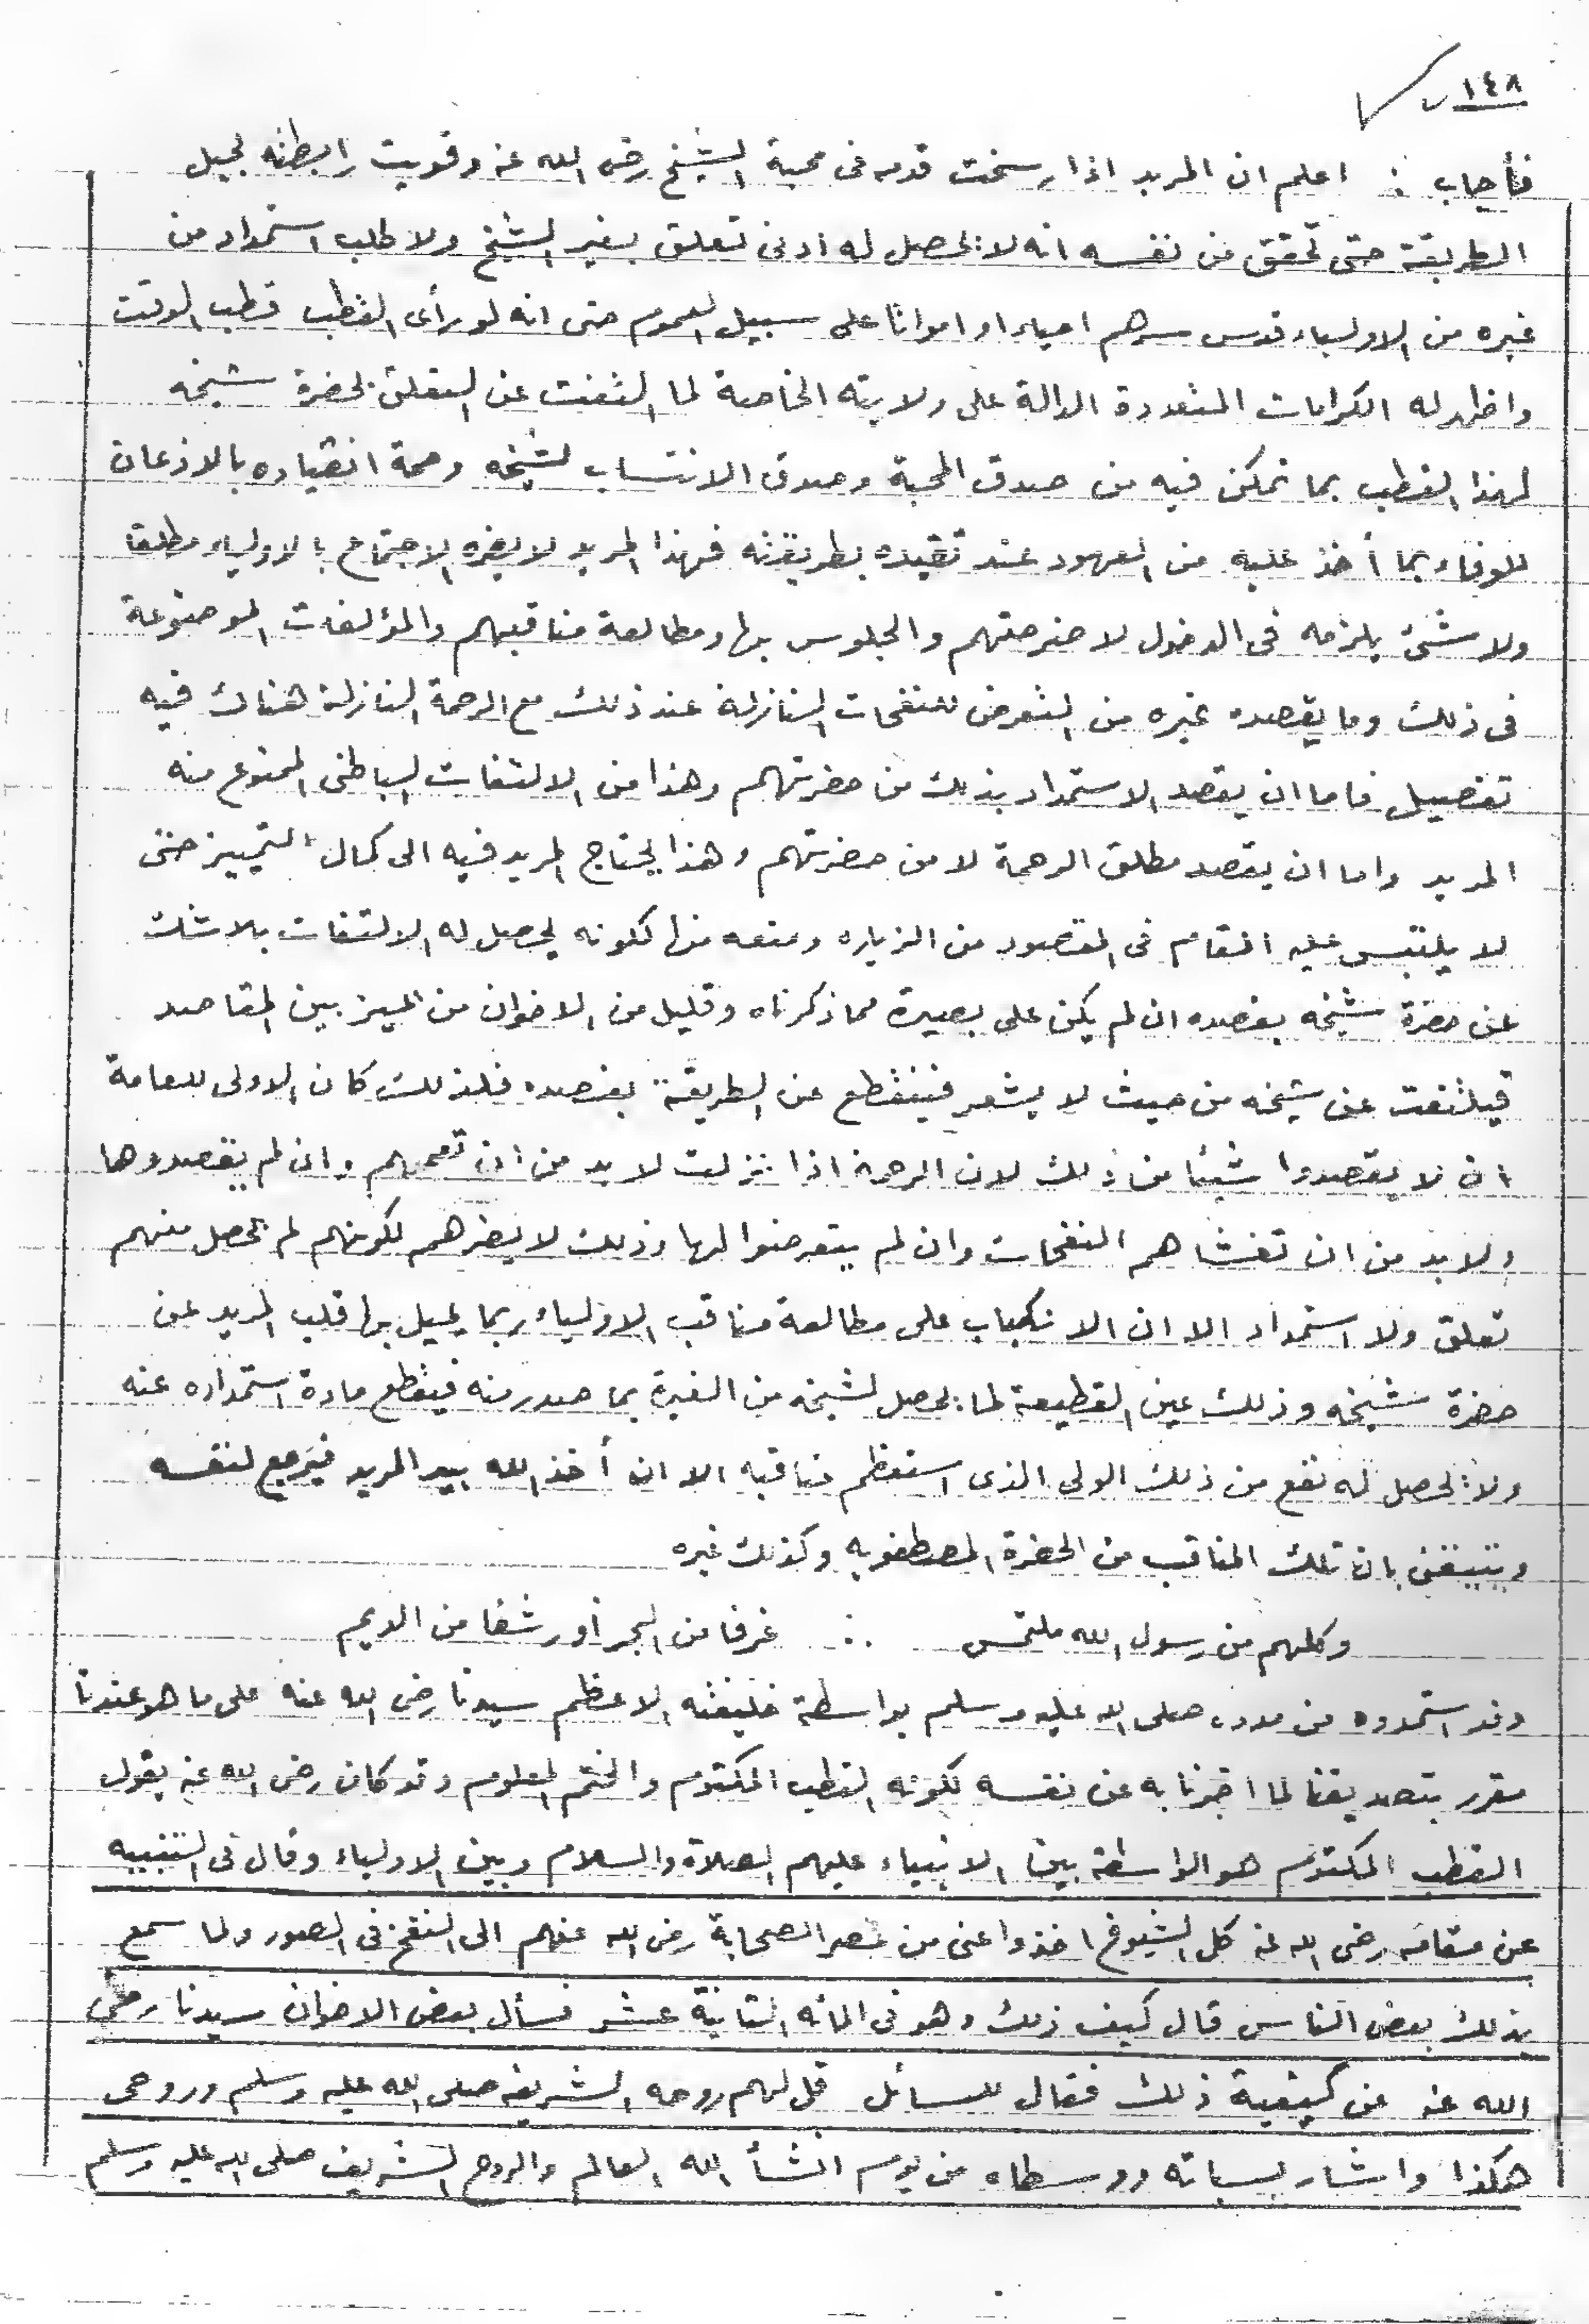 ١٤٨
فأجاب : اعلم ان المريد اذا رسخت قدمه فى محبة الشيخ رضى الله عنه وقويت رابطته بحبل
الطريقة حتى تحقق من نفسه انه لا يحصل له ادنى تعلق بغير الشيخ ولا طلب استمداد من
غيره من الاولياء قدس سرهم احياء او امواتا على سبيل العموم حتى انه لو رأى القطب قطب الوقت
واظهر له الكرامات المتعددة الدالة على ولايته الخاصة لما التفت عن التعلق بحضرة شيخه
لهذا القطب بما تمكن فيه من صدق المحبة وصدق الانتساب لشيخه وصحة انقياده بالاذعان
للوفاء بما أخذ عليه من العهود عند تقيده بطريقته فهذا المريد لا يضره الاجتماع بالاولياء مطلقا
ولا شئ يلزمه فى الدخول لاضرحتهم والجلوس بها ومطالعة مناقبهم والمؤلفات الموضوعة
فى ذلك وما يقصده غيره من التعرض للنفحات النازلة عند ذلك مع الرحمة النازلة هناك فيه
تفصيل فاما ان يقصد الاستمداد بذلك من حضرتهم وهذا من الالتفات الباطنى الممنوع منه
المريد واما ان يقصد مطلق الرحمة لا من حضرتهم وهذا يحتاج المريد فيه الى كمال التمييز حتى
لا يلتبس عليه المقام فى المقصود من الزياره ومنعه منها لكونه يحصل له الالتفات بلا شك
عن حضرة شيخه بقصده ان لم يكن على بصيرة مما ذكرناه وقليل من الاخوان من الميز بين المقاصد
فيلتفت عن شيخه من حيث لا يشعر فينقطع عن الطريقة بقصده فلذلك كان الاولى للعامة
ان لا يقصدوا شيئا من ذلك لان الرحمة اذا نزلت لا بد من ان تعمهم وان لم يقصدوها
ولا بد من ان تغشاهم النفحات وان لم يتعرضوا لها وذلك لا يضرهم لكونهم لم يحصل منهم
تعلق ولا استمداد الا ان الانكباب على مطالعة مناقب الاولياء ربما يميل بها قلب المريد عن
حضرة شيخه وذلك عين القطيعة لما يحصل لشيخه من الغيرة بما صدر منه فيقطع مادة استمداده عنه
ولا يحصل له نفع من ذلك الولى الذى استعظم مناقبه الا ان أخذ الله بيد المريد فيرجع لنفسه
ويتيقن بان تلك المناقب من الحضرة المصطفويه وكذلك غيره
وكلهم من رسول الله ملتمس ∴ غرفا من البحر أو رشفا من الديم
وقد استمدوه من مدده صلى الله عليه وسلم بواسطة خليفته الاعظم سيدنا رضى الله عنه على ما هو عندنا
مقرر بتصديقنا لما اخبرنا به عن نفسه لكونه القطب المكتوم والختم المعلوم وقد كان رضى الله عنه يقول
القطب المكتوم هو الواسطة بين الانبياء عليهم الصلاة والسلام وبين الاولياء وقال فى التنبيه
عن مقامه رضى الله عنه كل الشيوخ اخذوا عنى من عصر الصحابة رضى الله عنهم الى النفخ فى الصور ولما سمع
بذلك بعض الناس قال كيف ذلك وهو فى المائه الثانية عشر فسأل بعض الاخوان سيدنا رضى
الله عنه عن كيفية ذلك فقال للسائل قل لهم روحه الشريفه صلى الله عليه وسلم وروحى
هكذا واشار بسبابته ووسطاه من يوم انشأ الله العالم والروح الشريف صلى الله عليه وسلم